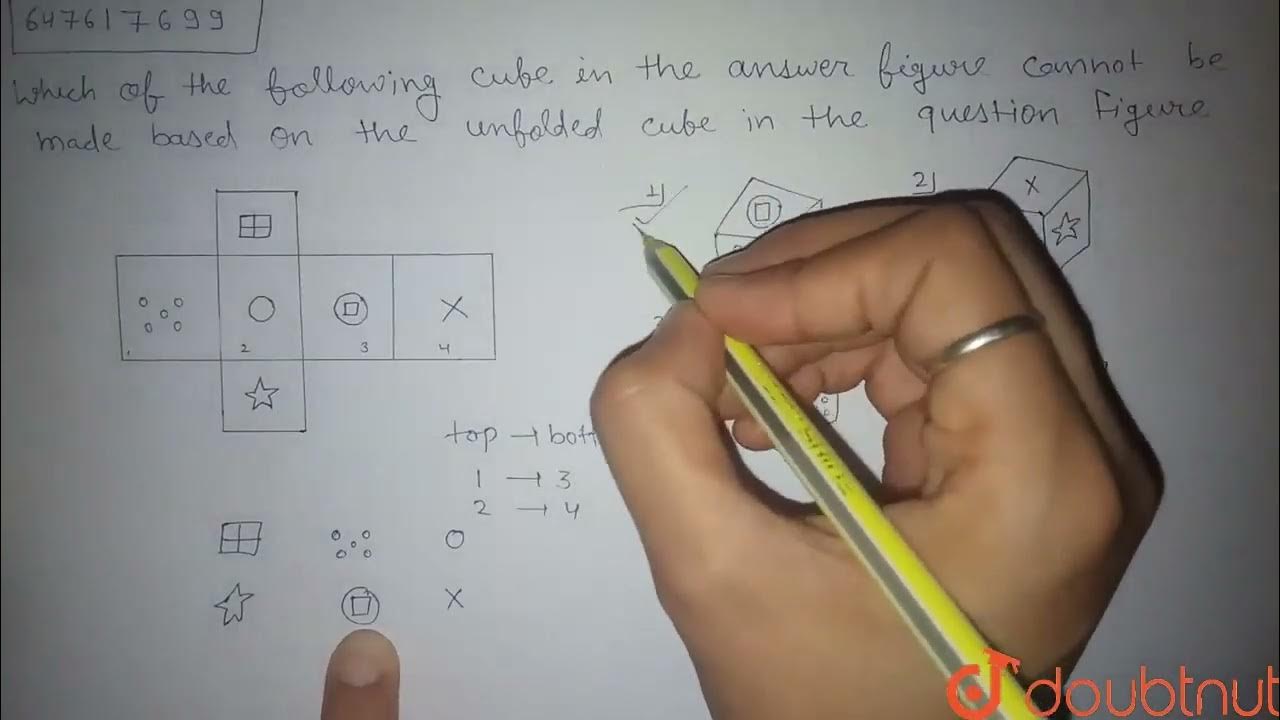 647617699
Which of the following cube in the answer figure cannot be
made based on the unfolded cube in the question figure
1)
2)
1 2 3 4
top → bott
1 → 3
2 → 4
doubtnut